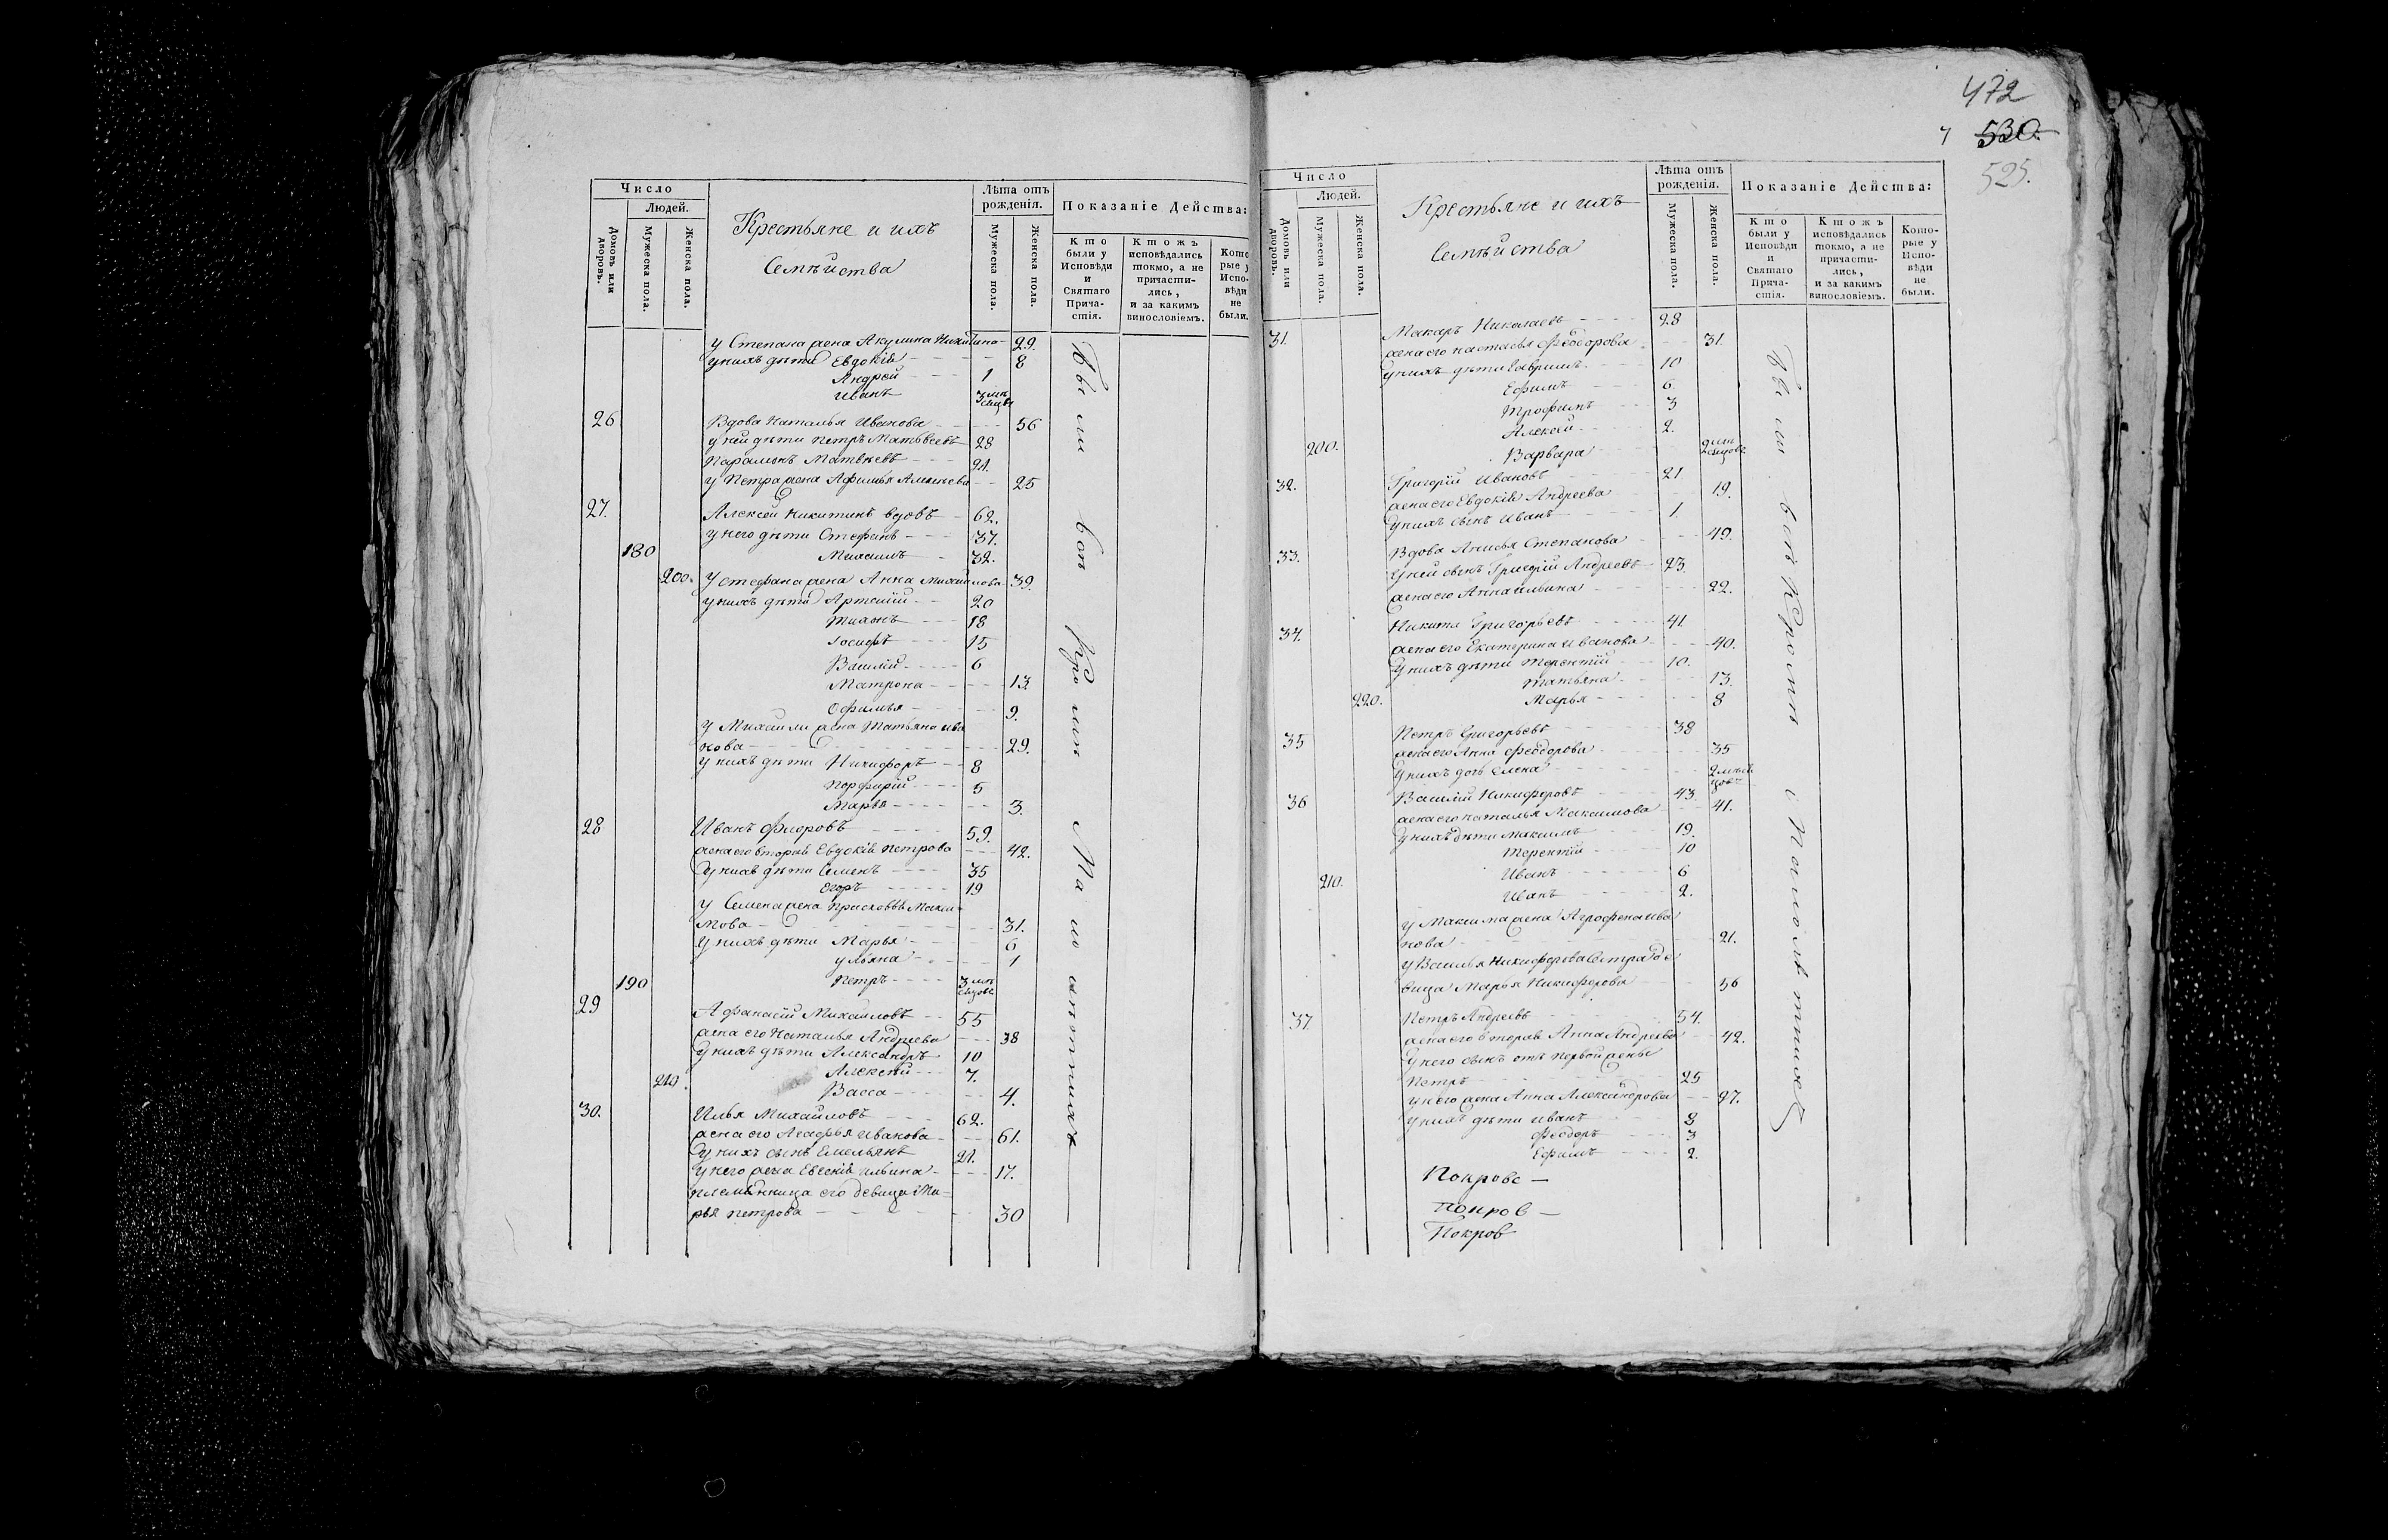 Число
Людей.
Домовъ или дворовъ.
Мужеска пола.
Женска пола.
Крестьяне и ихъ
Семѣйства
Лѣта отъ рожденія.
Мужеска пола.
Женска пола.
Показаніе Действа:
Кто были у Исповѣди и Святаго Причастія.
Ктожъ исповѣдались токмо, а не причастились, и за какимъ винословіемъ.
Которые у Исповѣди не были.
у Степана жена Акулина Никитина 29.
у нихъ дѣти Евдокія 8
Андрей 1
Иванъ 3 мѣсяцовъ
26 Вдова Наталья Иванова 56
у ней дѣти Петръ Матвеевъ 28
Парамонъ Матвѣевъ 24.
у Петра жена Афимья Алексѣева 25
27. Алексей Никитинъ вдовъ 62.
у него дѣти Стефанъ 37.
180 Михаилъ 32.
200. у Стефана жена Анна Михайлова 39.
у нихъ дѣти Артемій 20
Тихонъ 18
Іосифъ 15
Василій 6
Матрона 13.
Офимья 9.
у Михаилы жена Татьяна Ива
нова 29.
у нихъ дѣти Никифоръ 8
Порфирій 5
Марья 3.
28 Иванъ Фроровъ 59.
жена его вторая Евдокія Петрова 42.
у нихъ дѣти Семенъ 35
Егоръ 19
у Семена жена Прасковья Макси=
мова 31.
у нихъ дѣти Марья 6
Ульяна 1
190 Петръ 3 мѣсяцовъ
29 Афанасій Михайловъ 55
жена его Наталья Андреева 38
у нихъ дѣти Александръ 10
210. Алексѣй 7.
Васса 4.
30. Илья Михайловъ 62.
жена его Агафья Иванова 61.
у нихъ сынъ Емельянъ 21.
у него жена Евгенія Ильина 17.
племянница его девица Ма=
рья Петрова 30
472
7 530.
525.
Число
Людей.
Домовъ или дворовъ.
Мужеска пола.
Женска пола.
Крестьяне и ихъ
Семѣйства
Лѣта отъ рожденія.
Мужеска пола.
Женска пола.
Показаніе Действа:
Кто были у Исповѣди и Святаго Причастія.
Ктожъ исповѣдались токмо, а не причастились, и за какимъ винословіемъ.
Которые у Исповѣди не были.
31. Макаръ Николаевъ 28
жена его Настасья Феодорова 31.
у нихъ дѣти Гаврилъ 10
Ефимъ 6.
Трофимъ 3
Алексей 2.
200. Варвара 2 мѣсяцовъ
32. Григорій Ивановъ 21
жена его Евдокія Андреева 19.
у нихъ сынъ Иванъ 1.
33. Вдова Анисья Степанова 49.
у ней сынъ Григорій Андреевъ 23
жена его Анна Ильина 22.
34. Никита Григорьевъ 41.
жена его Екатерина Иванова 40.
у нихъ дѣти Терентій 10.
Татьяна 13.
220. Марья 8
35 Петръ Григорьевъ 38
жена его Анна Феодорова 35
у нихъ дочь Елена 2 мѣсяцовъ
36 Василій Никифоровъ 43.
жена его Наталья Максимова 41.
у нихъ дѣти Максимъ 19.
Терентій 10
210. Иванъ 6
Иванъ 2.
у Максима жена Агрофена Ива
нова 21.
у Василья Никифорова сестра де
вица Марья Никифорова 56
37 Петръ Андреевъ 54.
жена его вторая Анна Андреева 42.
у него сынъ отъ первой жены
Петръ 25
у него жена Анна Александрова 27.
у нихъ дѣти Иванъ 8
Феодоръ 3
Ефимъ 2.
Покрово —
Покров —
Покров